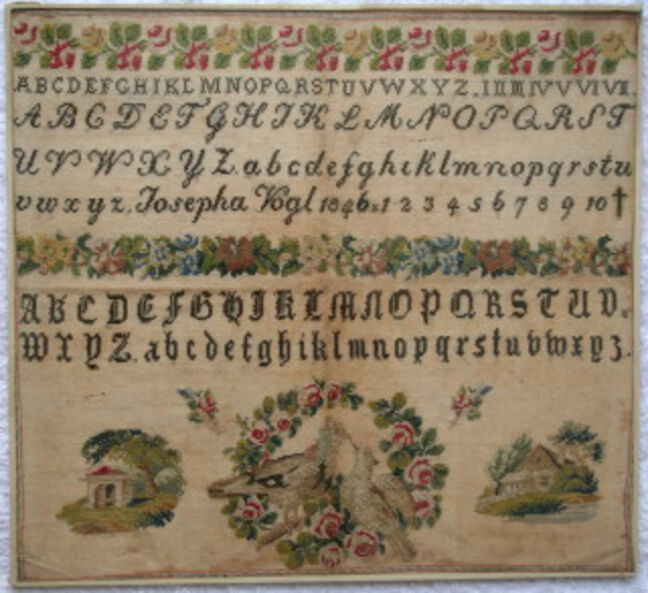 ABCDEFGHIKLMNOPQRSTUVWXYZ. I II III IV V VI VII.
ABCDEFGHIKLMNOPQRST
UVWXYZ. abcdefghiklmnopqrstu
vwxyz. Josepha Vogl 1846. 1 2 3 4 5 6 7 8 9 10 †
ABCDEFGHIKLMNOPQRSTUV.
WXYZ. abcdefghiklmnopqrstuvwxyz.